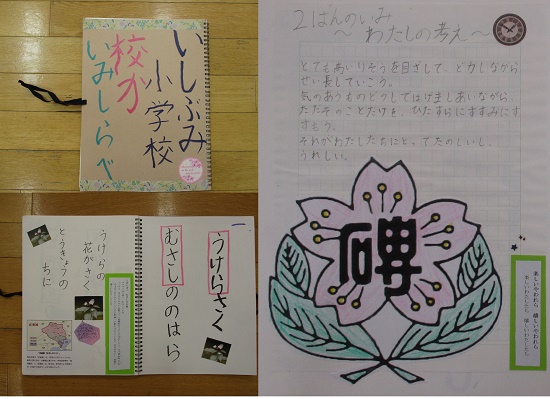 いしぶみ
小学校
校か
いみしらべ
うけらさく
むさしののはら
うけらの
花がさく
とうきょうの
ちに
2ばんのいみ
～わたしの考え～
とても高いりそうを目ざして、ど力しながら
せい長していこう。
気のあうものどうしではげましあいながら、
ただそのことだけを、ひたすらにすすみにす
すもう。
それがわたしたちにとってたのしいし、
うれしい。
碑
楽しいやわれら 嬉しいやわれら
楽しいわたしたち 嬉しいわたしたち